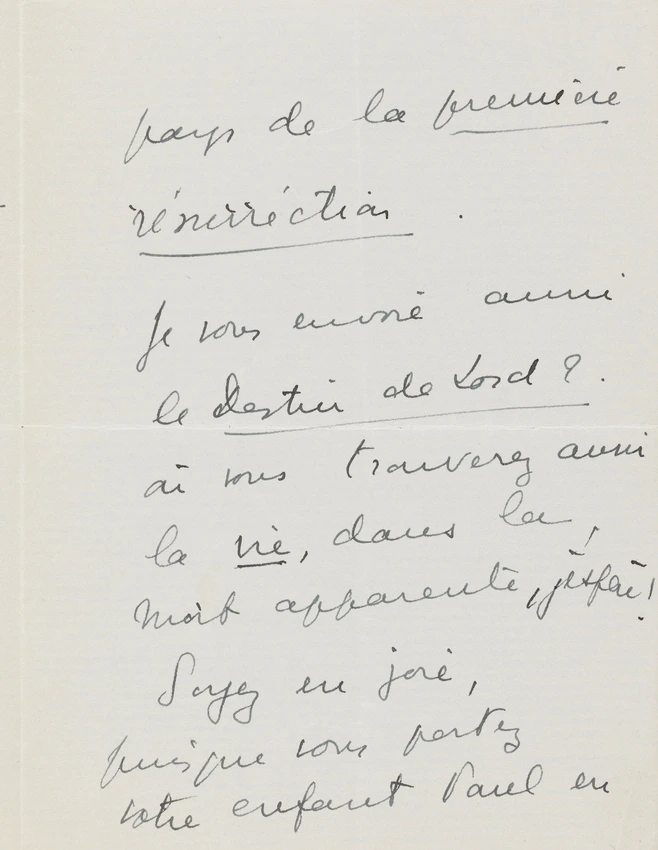 pays de la première
résurréction .
Je vous envoie aussi
le Destin de Lord ? .
où vous trouverez aussi
la vie, dans la
mort apparente, j'espère !
Soyez en joie,
puisque vous portez
votre enfant Paul en